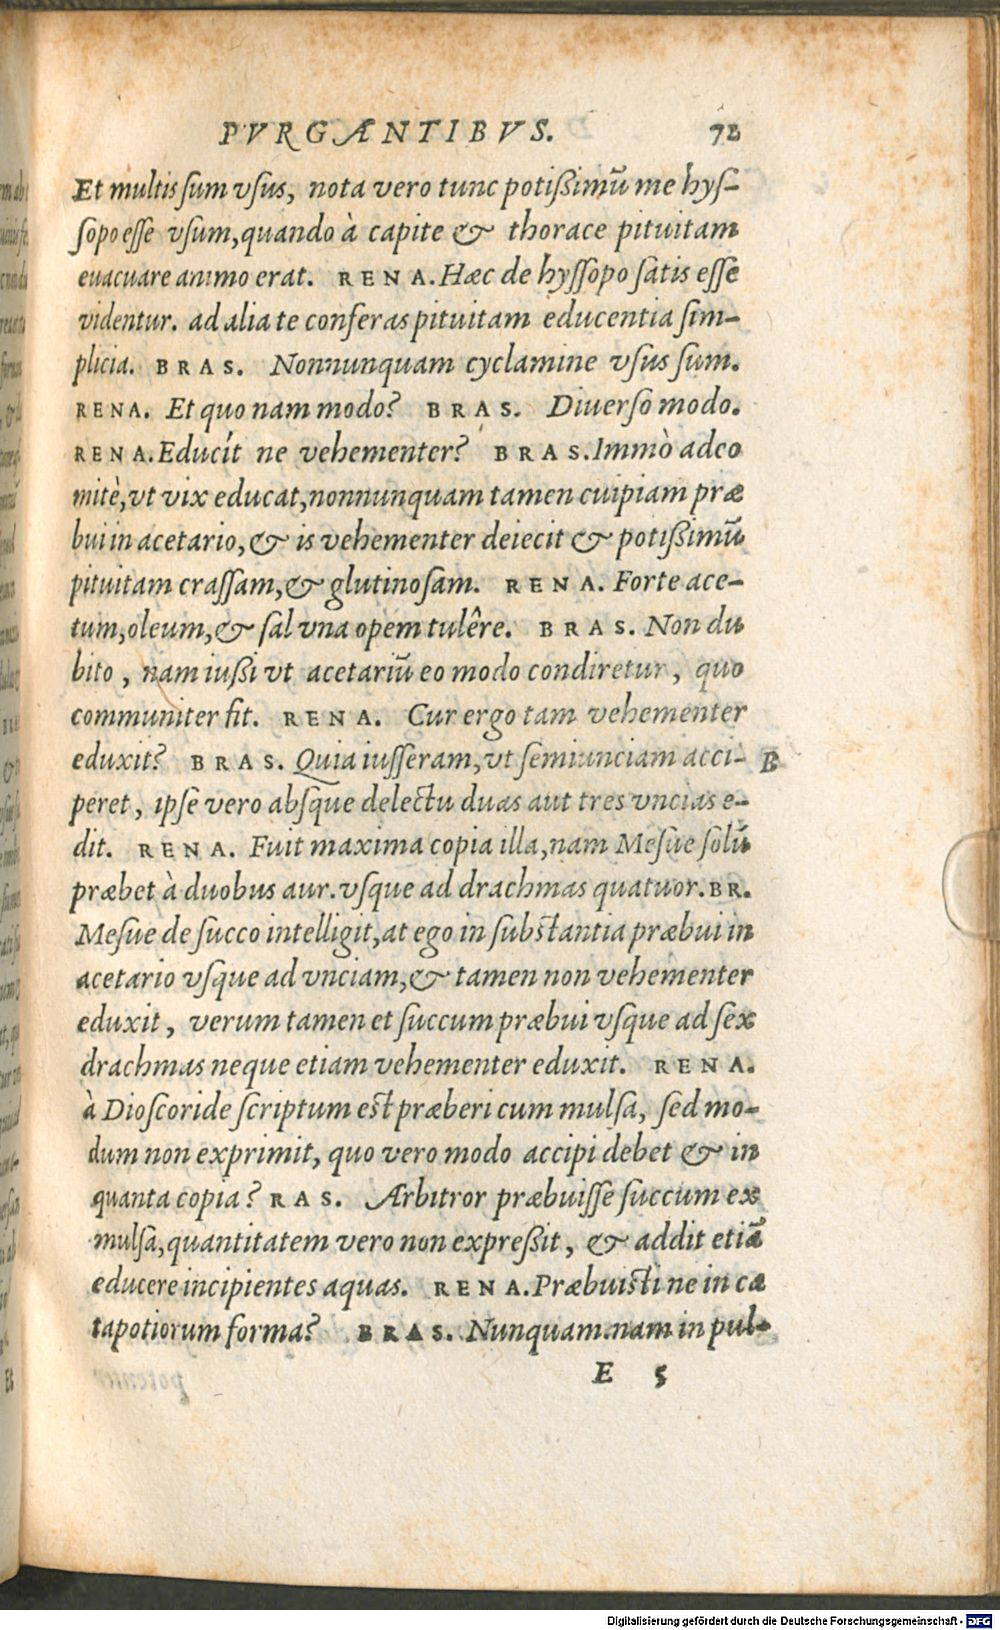 PVRGANTIBVS. 72
Et multis sum vsus, nota vero tunc potißimũ me hys-
sopo esse vsum, quando à capite & thorace pituitam
euacuare animo erat. RENA. Hæc de hyssopo satis esse
videntur. ad alia te conferas pituitam educentia sim-
plicia. BRAS. Nonnunquam cyclamine vsus sum.
RENA. Et quo nam modo? BRAS. Diuerso modo.
RENA. Educít ne vehementer? BRAS. Immò adeo
mitè, vt vix educat, nonnunquam tamen cuipiam præ
bui in acetario, & is vehementer deiecit & potißimũ
pituitam crassam, & glutinosam. RENA. Forte ace-
tum, oleum, & sal vna opem tulêre. BRAS. Non du
bito, nam iußi vt acetariũ eo modo condiretur, quo
communiter fit. RENA. Cur ergo tam vehementer
eduxit? BRAS. Quia iusseram, vt semiunciam acci- B
peret, ipse vero absque delectu duas aut tres vncias e-
dit. RENA. Fuit maxima copia illa, nam Mesue solũ
præbet à duobus aur. vsque ad drachmas quatuor. BR.
Mesue de succo intelligit, at ego in substantia præbui in
acetario vsque ad vnciam, & tamen non vehementer
eduxit, verum tamen et succum præbui vsque ad sex
drachmas neque etiam vehementer eduxit. RENA.
à Dioscoride scriptum est præberi cum mulsa, sed mo-
dum non exprimit, quo vero modo accipi debet & in
quanta copia? RAS. Arbitror præbuisse succum ex
mulsa, quantitatem vero non expreßit, & addit etiã
educere incipientes aquas. RENA. Præbuisti ne in ca
tapotiorum forma? BRAS. Nunquam. nam in pul-
E 5
Digitalisierung gefördert durch die Deutsche Forschungsgemeinschaft - DFG